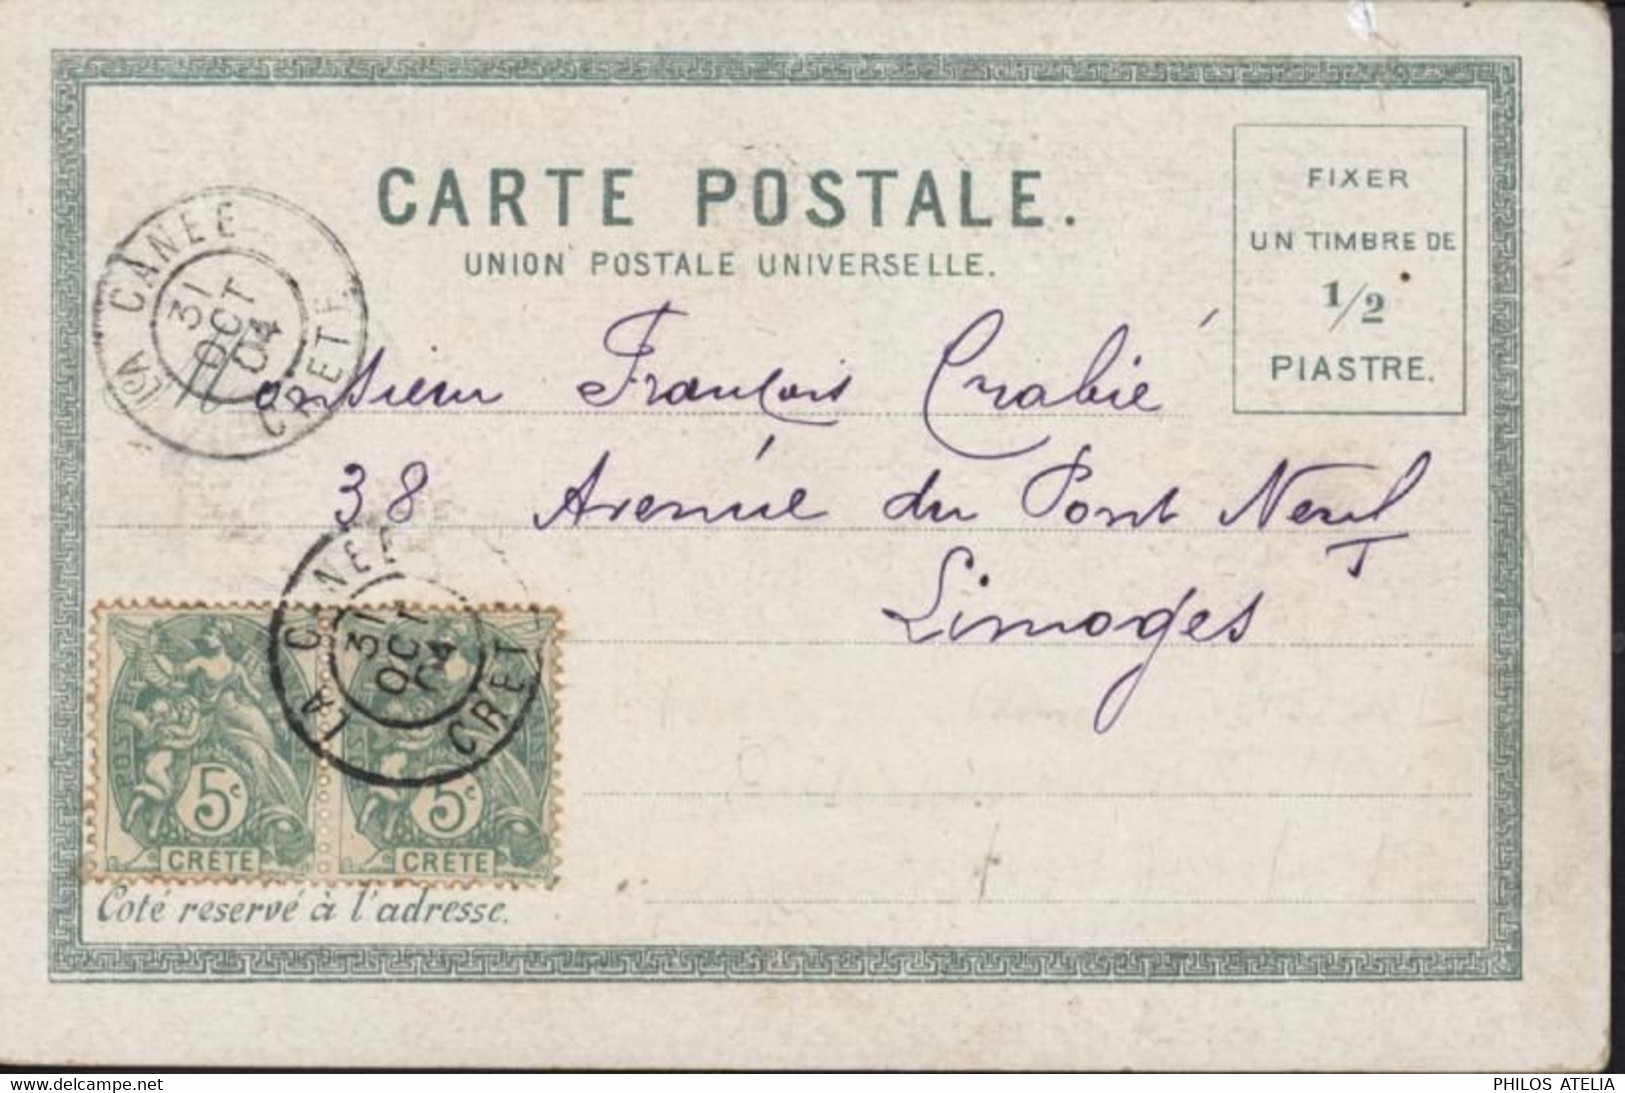 CARTE POSTALE.
UNION POSTALE UNIVERSELLE.
FIXER
UN TIMBRE DE
1/2
PIASTRE.
LA CANEE
31
OCT
04
CRETE
Monsieur François Crabié
38 Avenúe du Pont Neuf
Limoges
LA CANEE
31
OCT
04
CRETE
5c 5c
CRÈTE CRÈTE
Coté reservé à l'adresse.
www.delcampe.net
PHILOS ATELIA